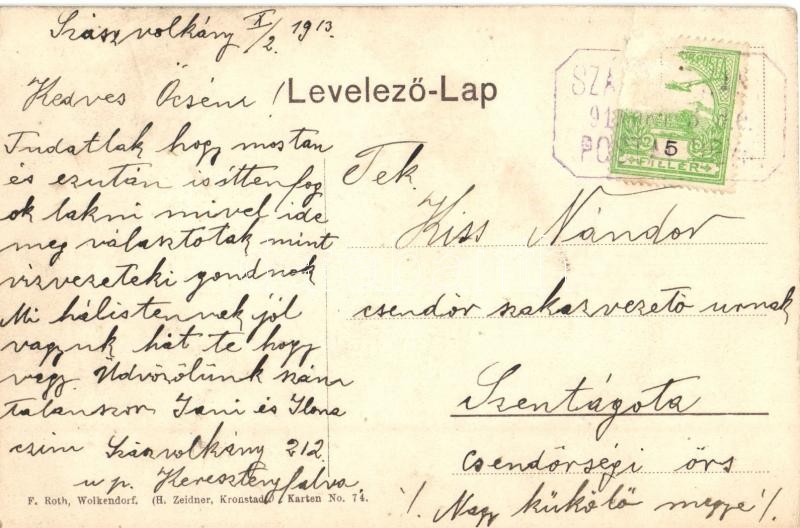 Szász volkány X/2. 1913.
Kedves Öcsém!
Levelező-Lap
Tudatlak hogy mostan
és ezután is itten fog
ok lakni mivel ide
meg választotak mint
vizvezeteki gondnok
Mi hálistennek jól
vagyunk hát te hogy
vagy. Üdvözölünk szám
talanszor Jani és Ilona
czim Szászvolkány 212.
u p. Keresztényfalva.
F. Roth, Wolkendorf. (H. Zeidner, Kronstadt) Karten No. 74.
SZÁ
91
PO
POSTA
5
FILLER
Tek.
Kiss Nándor
csendőr szakaszvezető urnak
Szentágota
Csendőrségi örs
/. Nagy küküllő megye /.